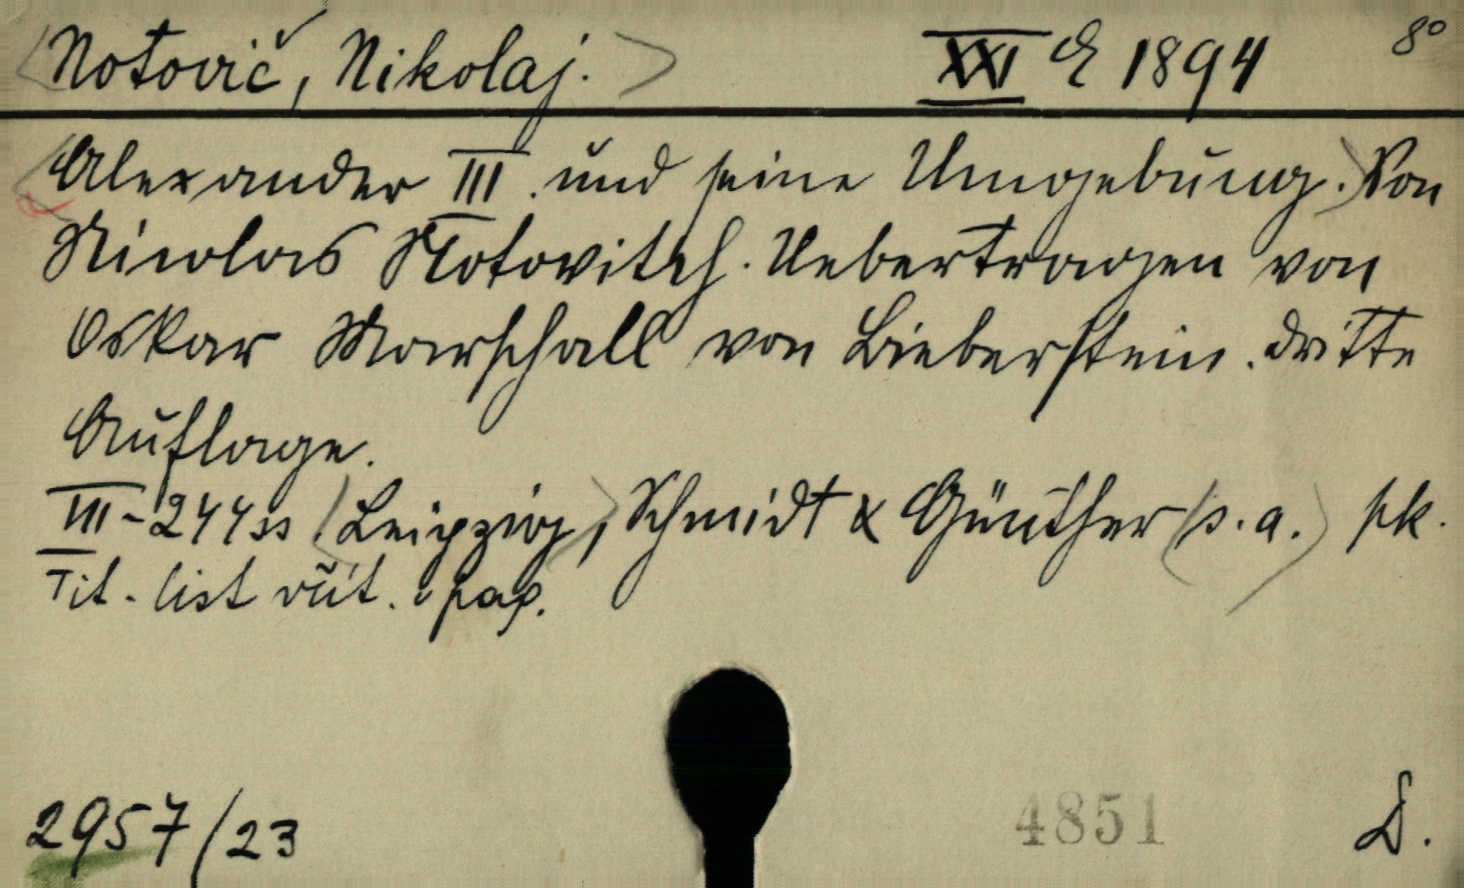 Notovič, Nikolaj. XXI E 1894 8°
Alexander III. und seine Umgebung. Von
Nicolas Notovitch. Uebertragen von
Oskar Marschall von Bieberstein. Dritte
Auflage.
III-244ss Leipzig, Schmidt & Günther (s.a.) pk.
Tit. list vůt. pap.
2957/23 4851 D.